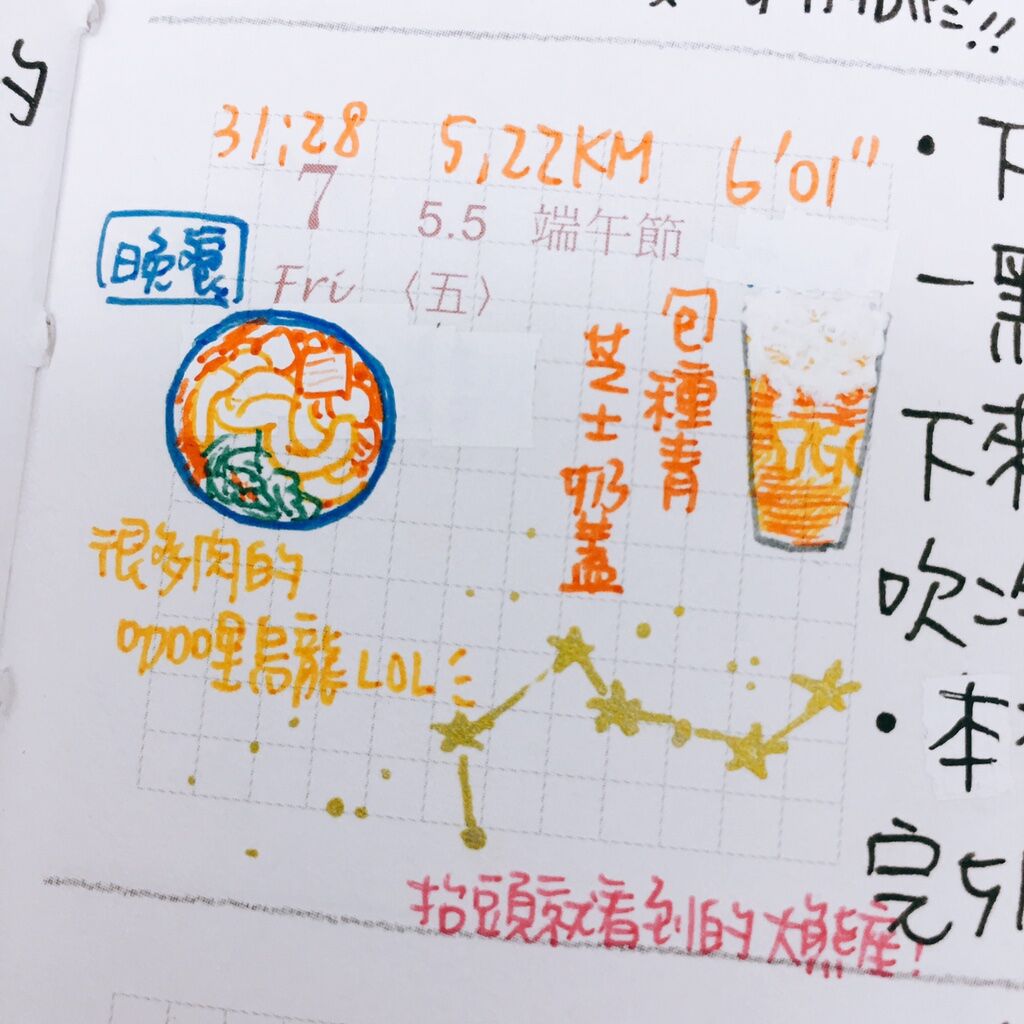 31;28 5,22KM 6'01"
7 5.5 端午節
Fri 〈五〉
晚餐
包種青
芝士奶蓋
很多肉的
咖哩烏龍LOL
抬頭就看到的大熊座!
・下
一黑
下來
吹
・本
完